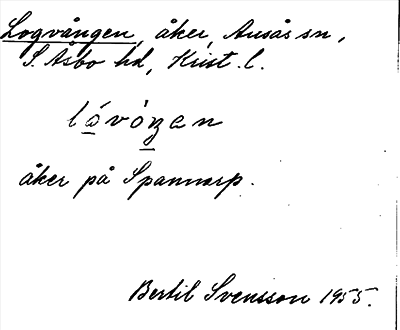 Logvången, åker, Ausås sn,
S. Åsbo hd, Krist. l.
lóvòŋen
åker på Spannarp.
Bertil Svensson 1955.